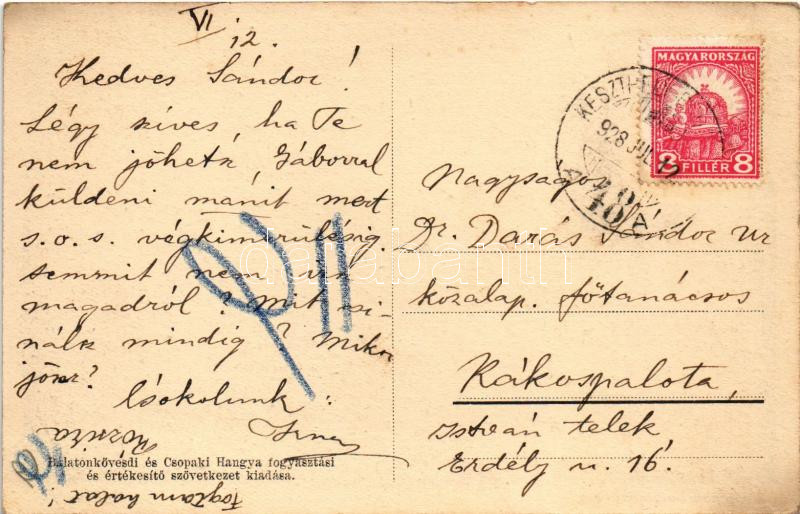 VI
12.
Kedves Sándor!
Légy szíves, ha Te
nem jöhetsz, Gáborral
küldeni mánit mert
s.o.s. végkimerülésig
semmit nem írsz
magadról? Mit csi-
nálsz mindig? Mikor
jössz?
Csókolunk:
Irma
Rózsika
fogtam halat!
Balatonkövesdi és Csopaki Hangya fogyasztási
és értékesítő szövetkezet kiadása.
MAGYARORSZÁG
8 FILLÉR 8
KESZTHELY
928 JUL 12
Nagyságos
Dr. Darás Sándor úr
közalap. főtanácsos
Rákospalota,
István telek
Erdély u. 16.
darabanth